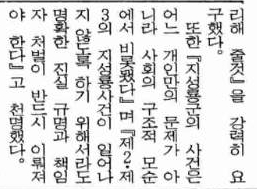 리해 줄것』을 강력히 요
구했다.
또한『지성룡군의 사건은
어느 개인만의 문제가 아
니라 사회의 구조적 모순
에서 비롯됐다』며『제2·제
3의 지성룡사건이 일어나
지 않도록 하기 위해서라도
명확한 진실 규명과 책임
자 처벌이 반드시 이뤄져
야 한다』고 천명했다.